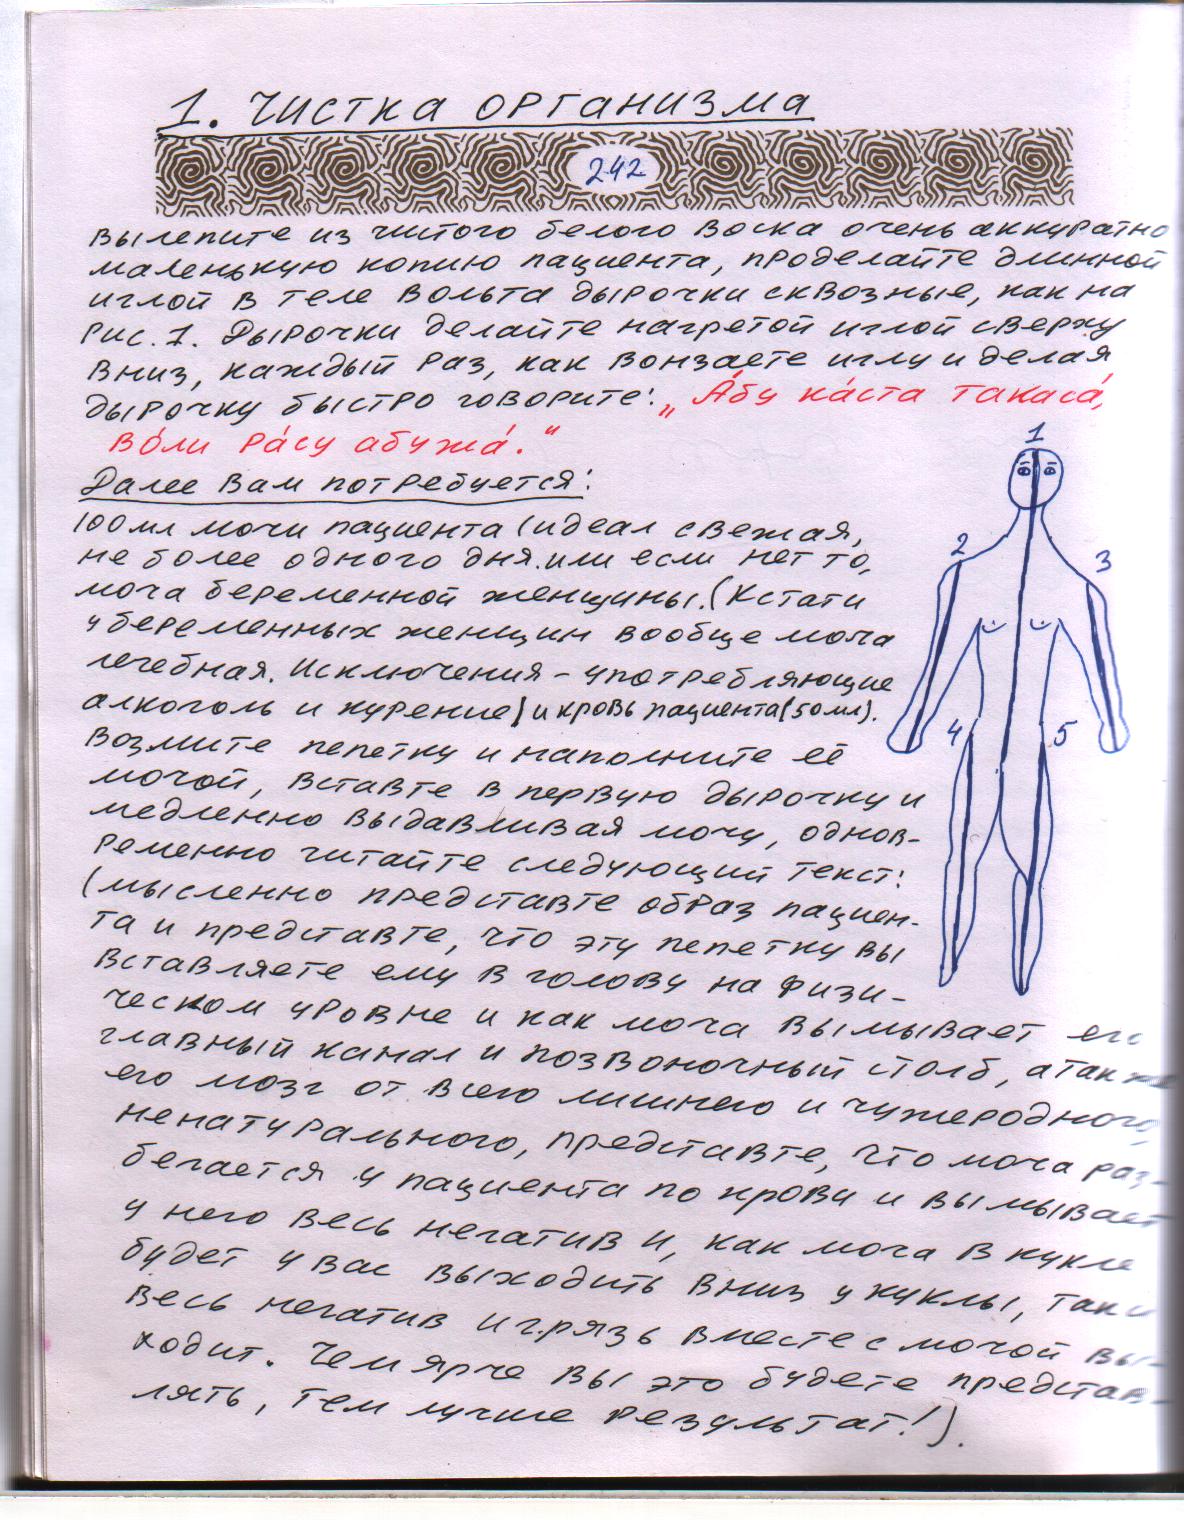 1. Чистка организма
242
Вылепите из чистого белого воска очень аккуратно
маленькую копию пациента, проделайте длинной
иглой в теле вольта дырочки сквозные, как на
рис. 1. Дырочки делайте нагретой иглой сверху
вниз, каждый раз, как вонзаете иглу и делая
дырочку быстро говорите: „А́бу ка́ста такаса́,
во́ли ра́су абужа́."
Далее вам потребуется:
100мл мочи пациента (идеал свежая,
не более одного дня. или если нет то,
моча беременной женщины. (Кстати
у беременных женщин вообще моча
лечебная. Исключения - употребляющие
алкоголь и курение) и кровь пациента (50мл).
Возмите пепетку и наполните её
мочой, вставте в первую дырочку и
медленно выдавливая мочу, однов-
ременно читайте следующий текст:
(мысленно представте образ пациен-
та и представте, что эту пепетку вы
вставляете ему в голову на физи-
ческом уровне и как моча вымывает его
главный канал и позвоночный столб, а также
его мозг от всего лишнего и чужеродного,
ненатурального, представте, что моча раз-
бегается у пациента по крови и вымывает
у него весь негатив и, как моча в кукле
будет у вас выходить вниз у куклы, так и
весь негатив и грязь вместе с мочой вы-
ходит. Чем ярче вы это будете представ-
лять, тем лучше результат!).
1
2
3
4
5